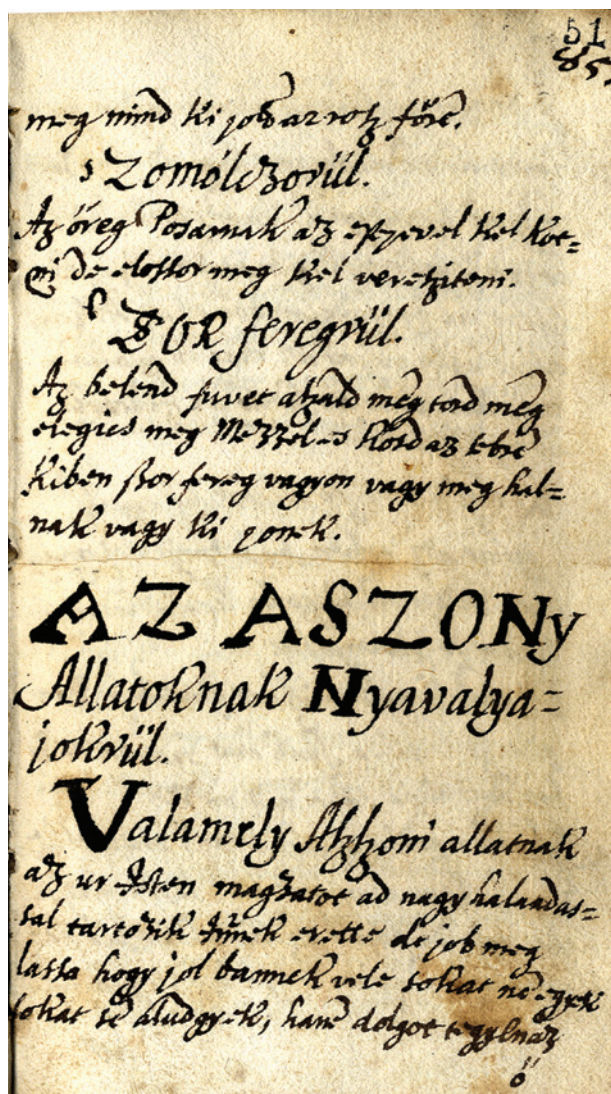 51
85
meg mind ki jobẽ az rotz főrẽ.
sZomólczorűl.
Az őreg Posarnak az espjevel kel kőt=
ni de elossor meg kel veretziteni.
SOR feregrűl.
Az belend fuvet aszald meg tord meg
elegics meg Mezzel es kősd az sebrẽ
kiben ßor fereg vagyon vagy meg hal=
nak vagy ki jonek.
AZ ASZONy
Allatoknak Nyavalya=
jokrűl.
Valamely Aszszoni allatnak
az ur Isten magzatot ad nagy halaadas=
sal tartozik Istẽnek erette de job meg
lassa hogy jol bannek vele sokat ne egyek
sokat se aludgyek, hanẽ dolgot tegyen az
ő